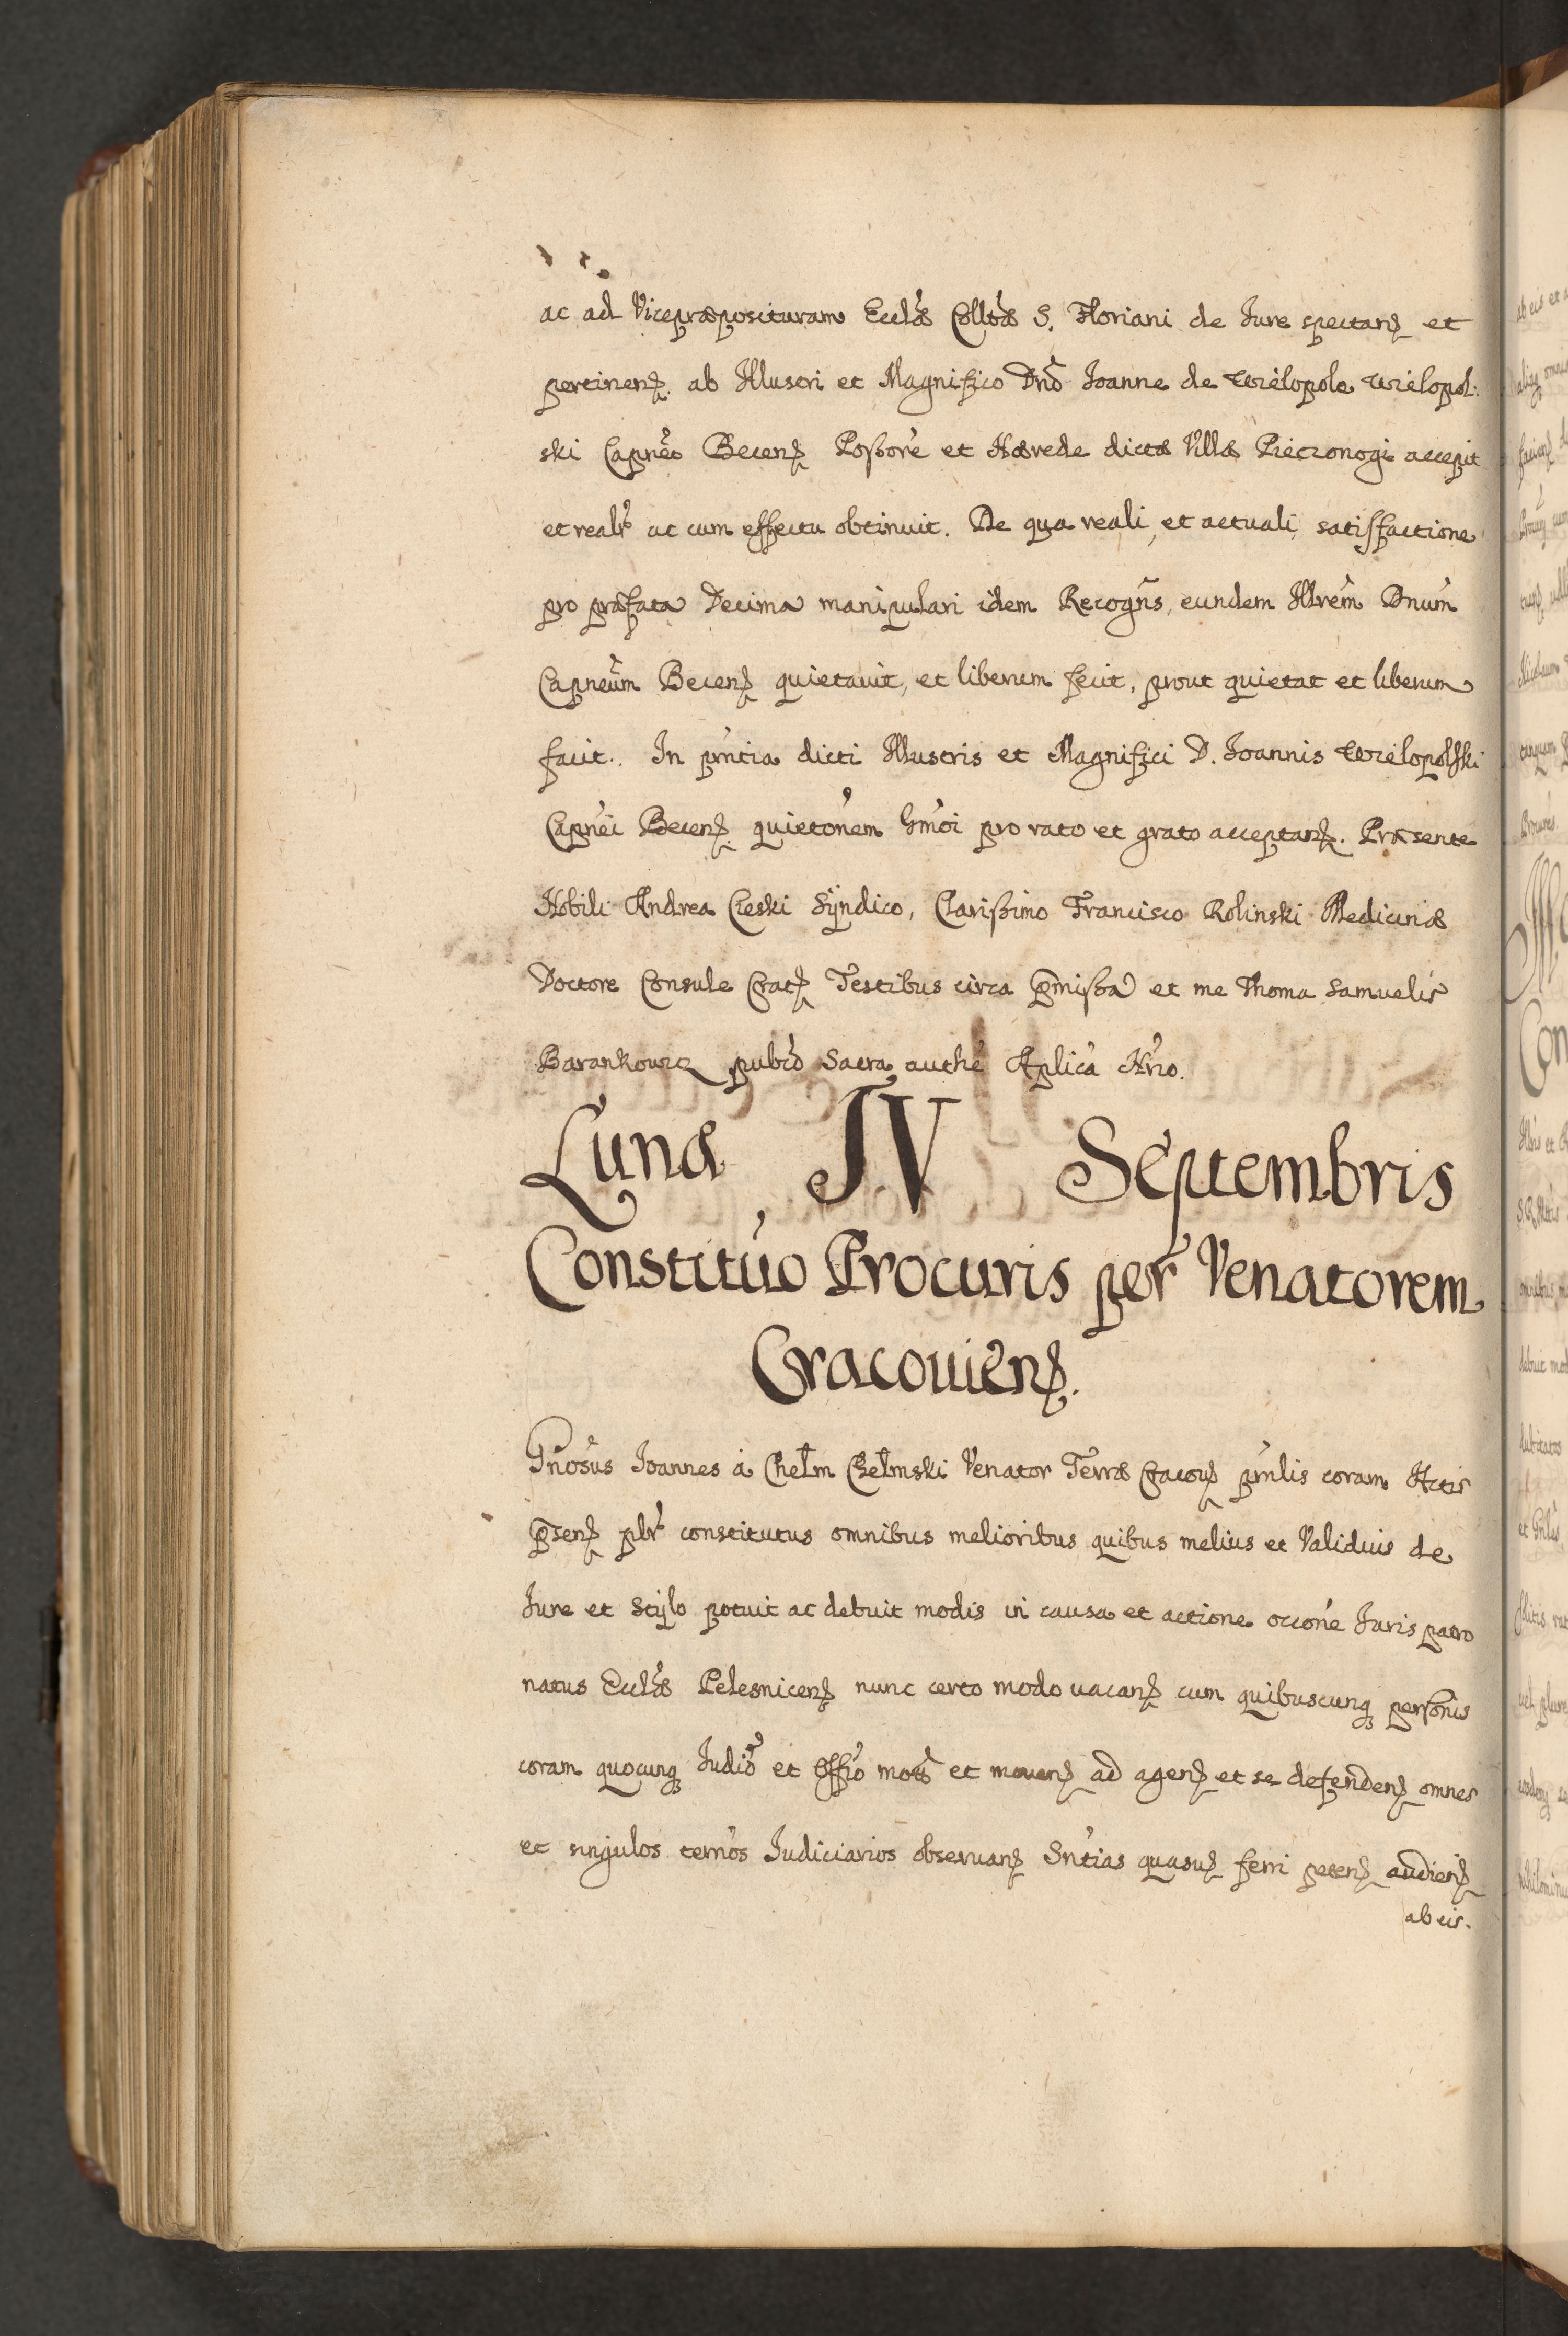 ac ad Vicepræposituram Ecclæ Collæ S. Floriani de Jure spectanꝫ et
pertinenꝫ. ab Illustri et Magnifico Dnō Joanne de Wielopole Wielopol:
ski Capneo Becenꝫ Poßore et Hærede dictæ Villæ Pieczonogi accepit
et realr̃ ac cum effectu obtinuit. De qua reali, et actuali satisfactione
pro præfata Decima manipulari idem Recogñs, eundem Illrem̃ Dnum̃
Capneum̃ Becenꝫ quietavit, et liberum fecit, prout quietat et liberum
facit. In pñtia dicti Illustris et Magnifici D. Joannis Wielopolski
Capnei Becenꝫ quietonem hmoi pro rato et grato acceptanꝫ. Præsente
Nobili Andrea Cieski Sÿndico, Clarißimo Francisco Rolinski Medicinæ
Doctore Consule Cracꝫ Testibus circa p̃mißa et me Thoma Samuelis
Barankowicz pubco Sacra authe Aplica Nrio.
Lunæ IV Septembris
Constituo Procuris per Venatorem
Cracouienꝫ.
Gnosus Joannes à Chełm Chełmski Venator Terræ Cracouꝫ pñlis coram Actis
p̃senꝫ plr̃ constitutus omnibus melioribus quibus melius et Validius de
Jure et Stÿlo potuit ac debuit modis in causa et actione occone Juris patro
natus Ecclæ Pelesnicenꝫ nunc certo modo uacanꝫ cum quibuscunqꝫ personis
coram quocunqꝫ Judio et Offio mota et mouenꝫ ad agenꝫ et se defendenꝫ omnes
et singulos ternos Judiciarios obseruanꝫ Sntias quasuꝫ ferri petenꝫ audienꝫ
ab eis.